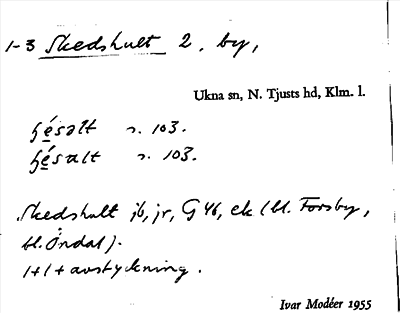 1-3 Skedshult 2, by,
Ukna sn, N. Tjusts hd, Klm. l.
ɧésəlt n. 103.
ɧésalt n. 103.
Skedshult jb, jr, G 46, ek (bl. Forsby,
bl. Öndal).
1+1+avstyckning.
Ivar Modéer 1955